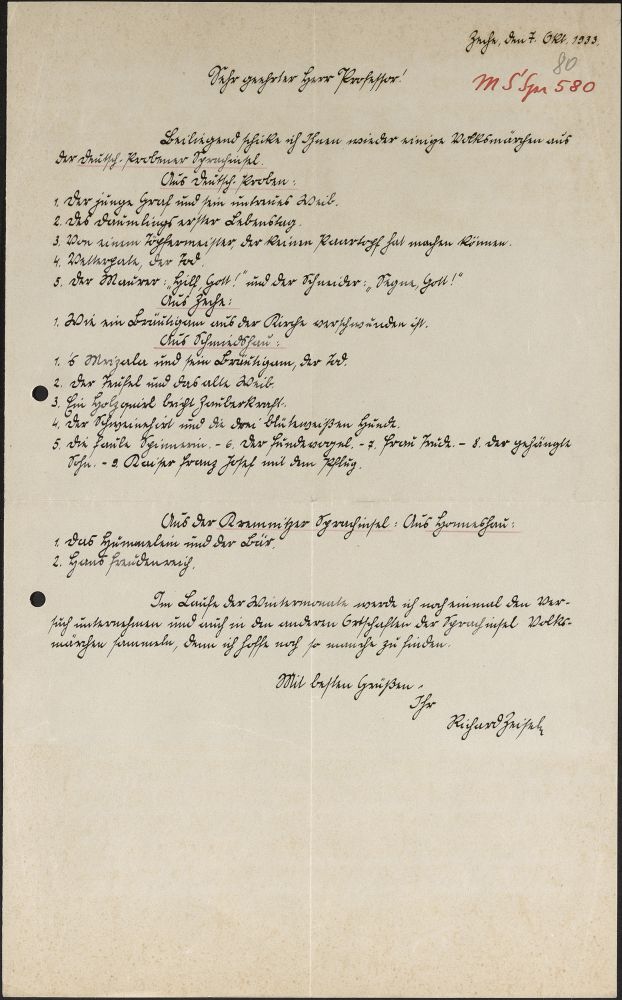 Zeche, den 7. Okt. 1933.
80
Sehr geehrter Herr Professor!
M S'Spr 580
Beiliegend schicke ich Ihnen wieder einige Volksmärchen aus
der Deutsch-Probener Sprachinsel.
Aus Deutsch-Proben:
1. Der junge Graf und sein untreues Weib.
2. Des Däumlings erster Lebenstag.
3. Von einem Töpfermeister, der keinen Paartopf hat machen können.
4. Vetterpate, der Tod.
5. Der Maurer: „Hilf, Gott!" und der Schneider: „Segne, Gott!"
Aus Zeche:
1. Wie ein Bräutigam aus der Kirche verschwunden ist.
Aus Schmiedshau:
1. 's und sein Bräutigam, der Tod.
2. Der Teufel und das alte Weib.
3. Ein Holzquirl bricht Zauberkraft.
4. Der Schweinehirt und die drei blütenweißen Hunde.
5. Die faule Spinnerin. - 6. Der Fundevogel. - 7. Frau Trude. - 8. Der gehängte
Sohn. - 9. Kaiser Franz Josef mit dem Pflug.
Aus der Kremnitzer Sprachinsel: Aus Honneshau:
1. Das Hummelein und der Bär.
2. Hans Freudenreich.
Im Laufe der Wintermonate werde ich noch einmal den Ver-
such unternehmen und auch in den anderen Ortschaften der Sprachinsel Volks-
märchen sammeln, denn ich hoffe noch so manche zu finden.
Mit besten Grüßen
Ihr
Richard Zeisel